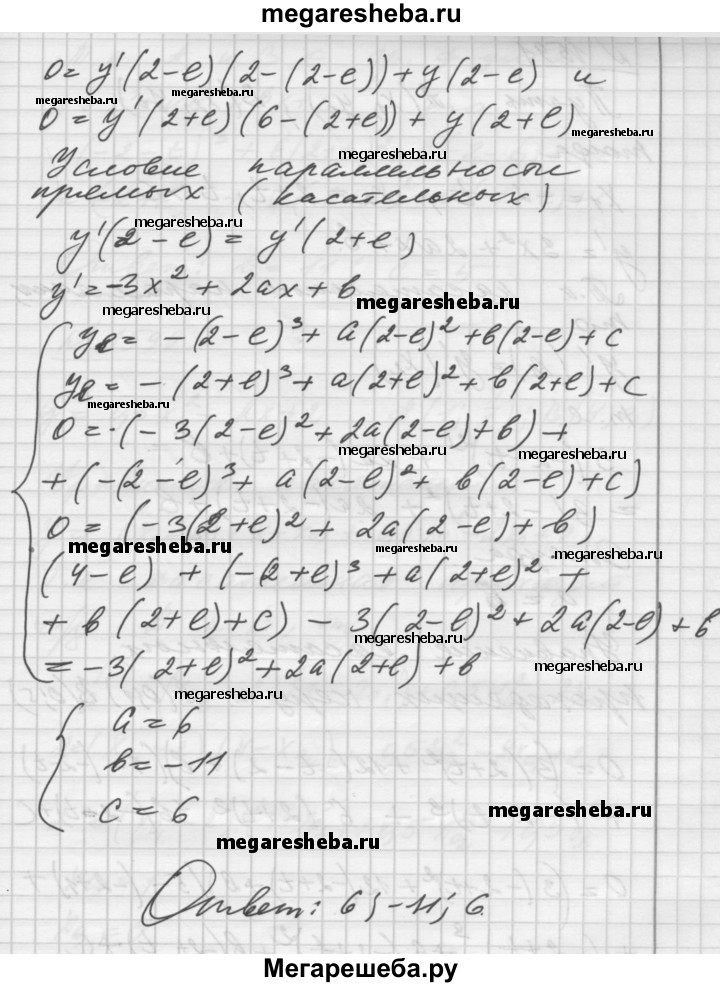 megaresheba.ru
0 = y'(2-e)(2-(2-e)) + y(2-e) и
megaresheba.ru megaresheba.ru
0 = y'(2+e)(6-(2+e)) + y(2+e)
megaresheba.ru
Условие параллельности
megaresheba.ru
прямых (касательных)
megaresheba.ru
y'(2-e) = y'(2+e)
y' = -3x² + 2ax + в
megaresheba.ru
megaresheba.ru
ye = -(2-e)³ + a(2-e)² + в(2-e) + c
megaresheba.ru
ye = -(2+e)³ + a(2+e)² + в(2+e) + c
megaresheba.ru
0 = (-3(2-e)² + 2a(2-e) + в) +
megaresheba.ru
megaresheba.ru
+ (-(2-e)³ + a(2-e)² + в(2-e) + c)
megaresheba.ru
0 = (-3(2+e)² + 2a(2-e) + в)
megaresheba.ru megaresheba.ru megaresheba.ru
(4-e) + (-(2+e)³ + a(2+e)² +
+ в(2+e) + c) - 3(2-e)² + 2a(2-e) + в
megaresheba.ru
= -3(2+e)² + 2a(2+e) + в
megaresheba.ru
megaresheba.ru
a = 6
в = -11
c = 6
megaresheba.ru
megaresheba.ru
Ответ: 6; -11; 6
Мегарешеба.ру